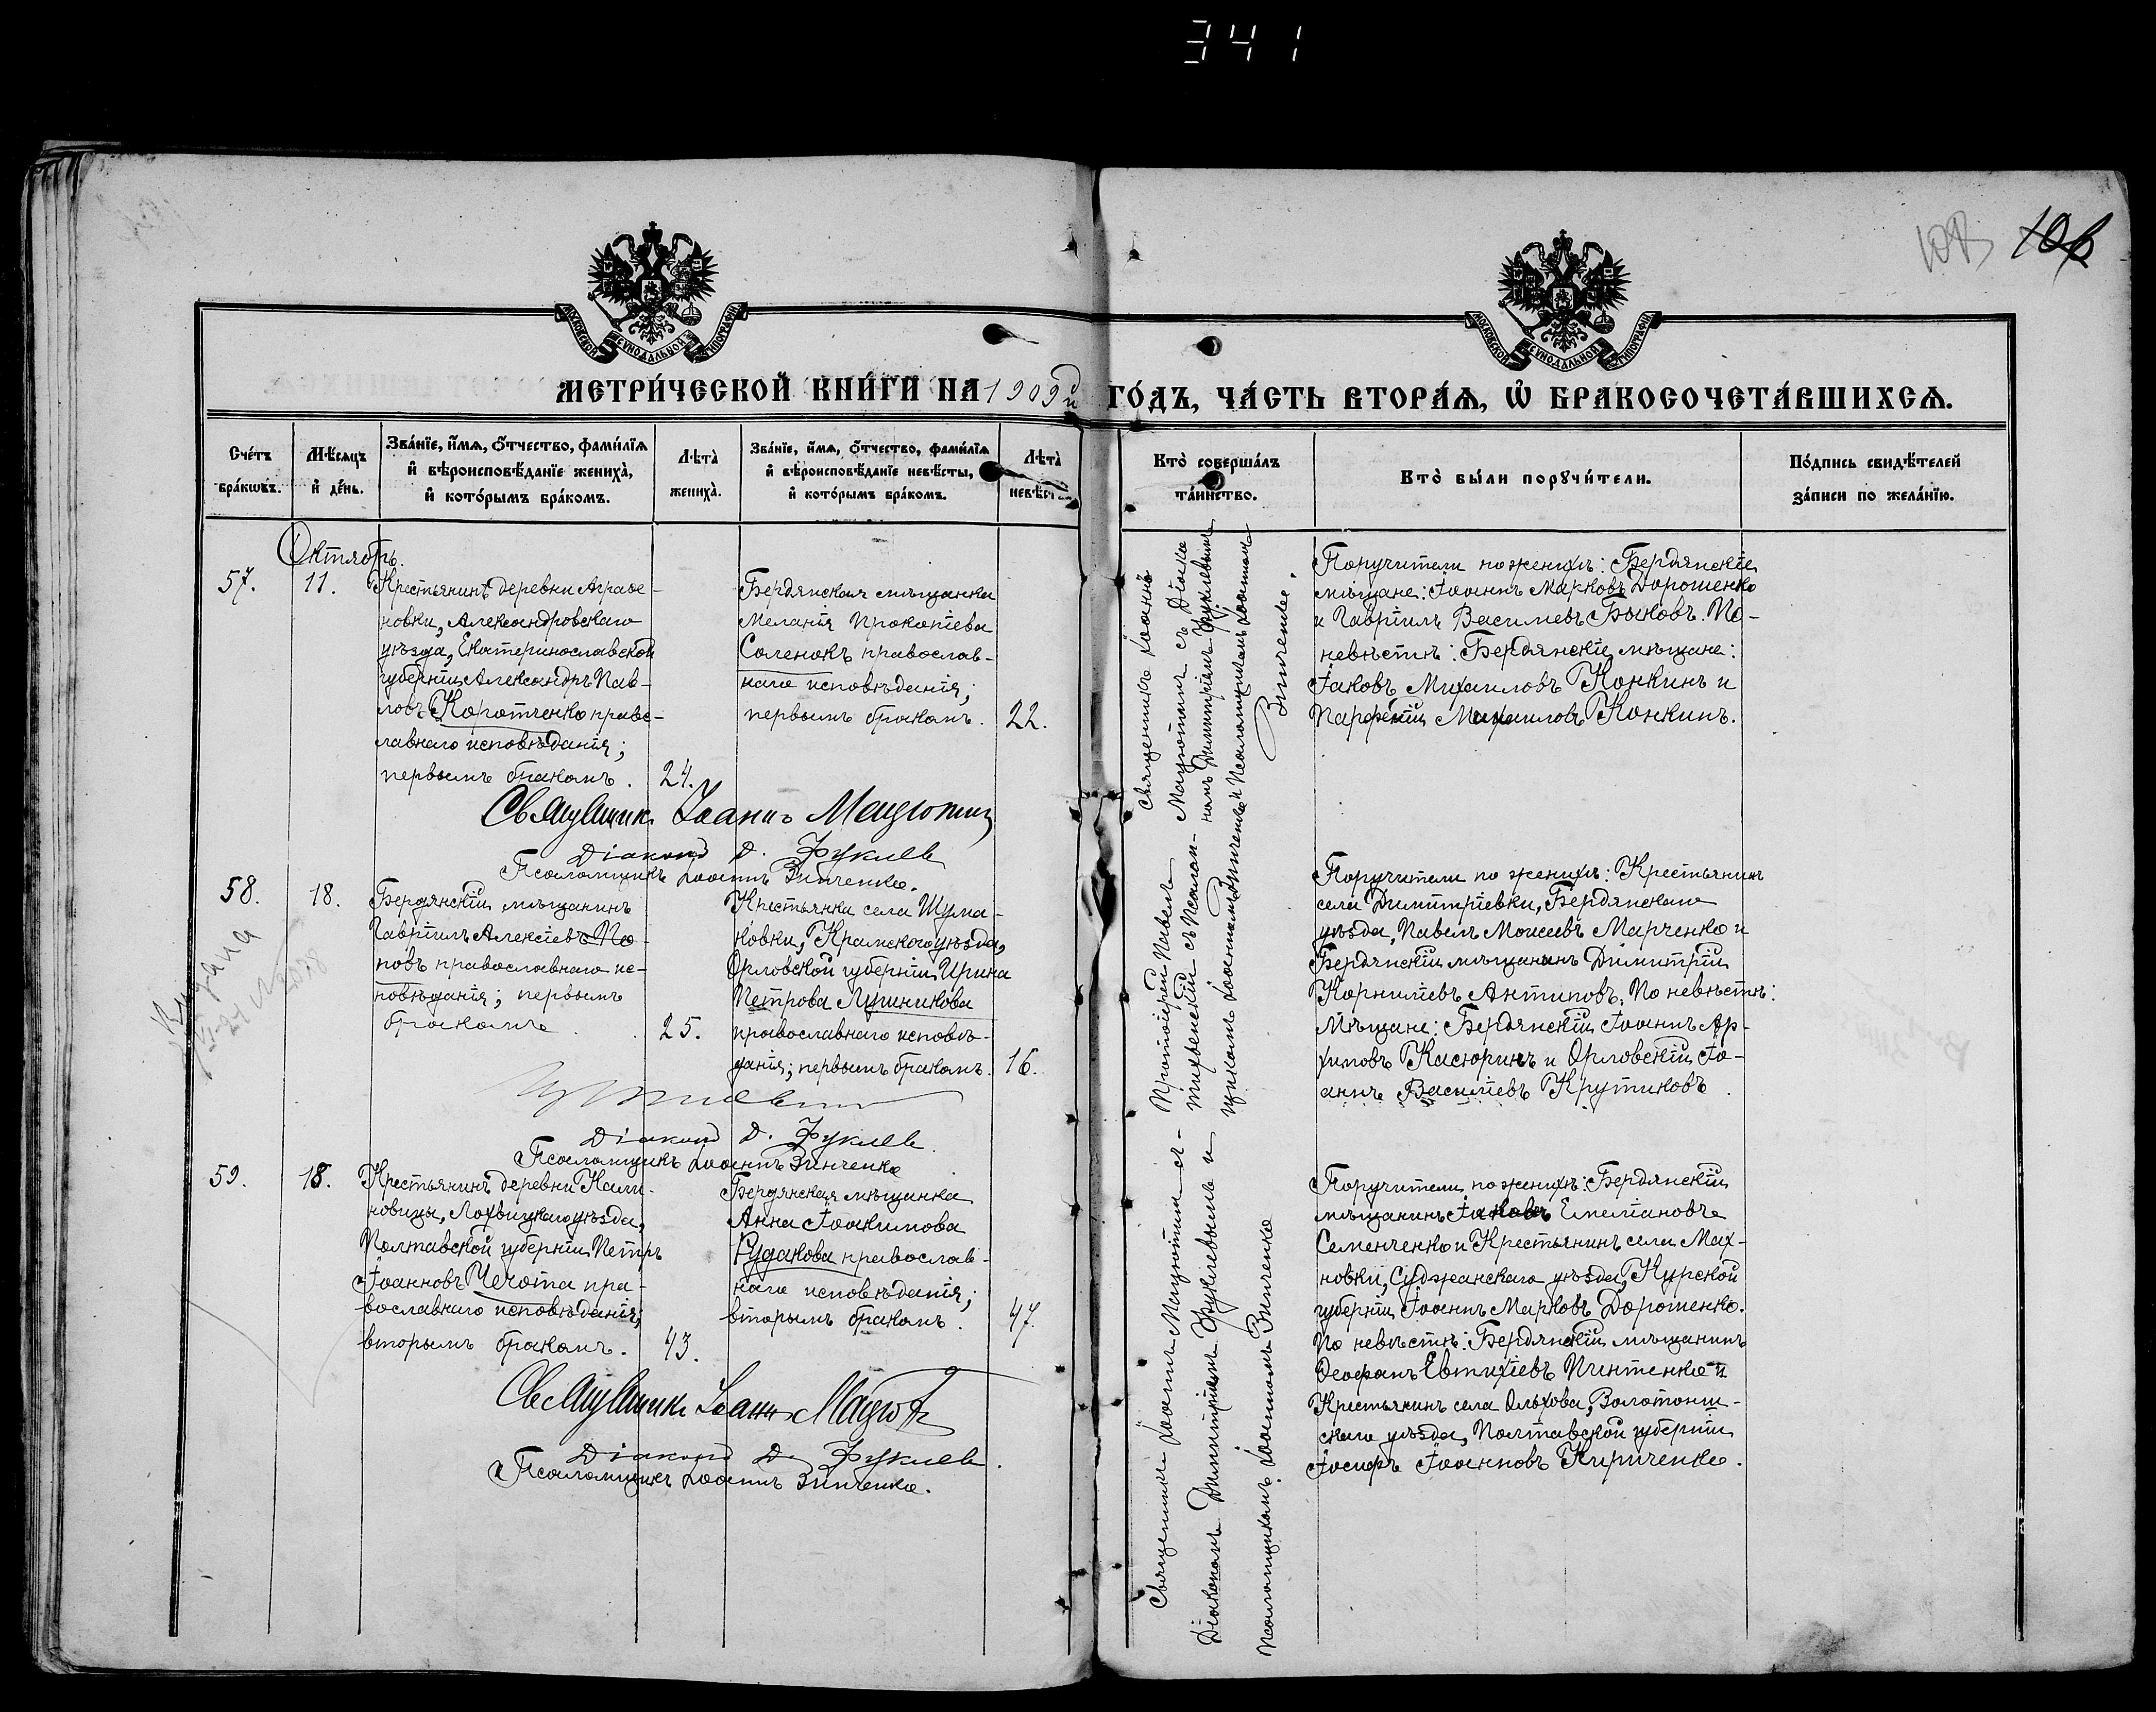 341
108
МОСКОВСКОЙ СѴНОДАЛЬНОЙ ТИПОГРАФІИ
МОСКОВСКОЙ СѴНОДАЛЬНОЙ ТИПОГРАФІИ
МЕТРИ́ЧЕСКОЙ КНИ́ГИ НА 1909й ГО́ДЪ, ЧА́СТЬ ВТОРА́Ѧ, Ѡ҆ БРАКОСОЧЕТА́ВШИХСѦ.
Сче́тъ
бра́кѡвъ.
Мѣ́сѧцъ
и҆ де́нь.
Зва́нїе, и҆́мѧ, ѻ҆́тчество, фами́лїѧ
и҆ вѣроисповѣ́данїе жениха̀,
и҆ кото́рымъ бра́комъ.
Лѣта̀
жениха̀.
Зва́нїе, и҆́мѧ, ѻ҆́тчество, фами́лїѧ
и҆ вѣроисповѣ́данїе невѣ́сты,
и҆ кото́рымъ бра́комъ.
Лѣта̀
невѣ́сты.
Кто̀ соверша́лъ
та́инство.
Кто̀ бы́ли порꙋчи́тели.
По́дпись свидѣ́телей
за́писи по жела́нїю.
Октябрь.
57.
11.
Крестьянинъ деревни Аграфе-
новки, Александровскаго
уѣзда, Екатеринославской
губерніи Александръ Пав-
ловъ Коротченко правос-
лавнаго исповѣданія;
первымъ бракомъ.
24.
Бердянская мѣщанка
Меланія Прокопіева
Соленокъ православ-
наго исповѣданія;
первымъ бракомъ.
22.
Священникъ Іоаннъ
Мацютинъ съ Діако-
номъ Димитріемъ Фукилевымъ
и Псаломщикомъ Іоанномъ
Зинченко.
Поручители по женихѣ: Бердянскіе
мѣщане: Іоаннъ Марковъ Дорошенко
и Гавріилъ Васильевъ Быковъ. По
невѣстѣ: Бердянскіе мѣщане:
Іаковъ Михаиловъ Конкинъ и
Парфеній Михаиловъ Конкинъ.
Священникъ Іоаннъ Мацютинъ
Діаконъ Д. Фукилевъ
Псаломщикъ Іоаннъ Зинченко.
58.
18.
Бердянскій мѣщанинъ
Гавріилъ Алексіевъ По-
повъ православнаго ис-
повѣданія; первымъ
бракомъ
25.
Крестьянка села Шума-
ковки, Кромскаго уѣзда,
Орловской губерніи Ирина
Петрова Лушникова
православнаго исповѣ-
данія; первымъ бракомъ.
16.
Протоіерей Павелъ
Тихвенскій съ Псалом-
щикомъ Іоанномъ Зинченко
Поручители по женихѣ: Крестьянинъ
села Димитріевки, Бердянскаго
уѣзда, Павелъ Моисеевъ Марченко и
Бердянскій мѣщанинъ Димитрій
Корниліевъ Антиповъ. По невѣстѣ:
Мѣщане: Бердянскій Іоаннъ Ар-
хиповъ Касюринъ и Орловскій Іо-
аннъ Василіевъ Крутиковъ.
Діаконъ Д. Фукилевъ.
Псаломщикъ Іоаннъ Зинченко
59.
18.
Крестьянинъ деревни Кали-
новицы, Лохвицкаго уѣзда,
Полтавской губерніи Петръ
Іоанновъ Чехота пра-
вославнаго исповѣданія;
вторымъ бракомъ.
43.
Бердянская мѣщанка
Анна Іоакимова
Рудакова православ-
наго исповѣданія;
вторымъ бракомъ.
47.
Священникъ Іоаннъ Мацютинъ съ
Діакономъ Димитріемъ Фукилевымъ и
Псаломщикомъ Іоанномъ Зинченко
Поручители по женихѣ: Бердянскій
мѣщанинъ Іаковъ Емеліановъ
Семенченко и Крестьянинъ села Мах-
новки, Суджанскаго уѣзда, Курской
губерніи Іоаннъ Марковъ Дорошенко.
По невѣстѣ: Бердянскій мѣщанинъ
Феофанъ Евтихіевъ Пинтенко и
Крестьянинъ села Ольхова, Золотонш-
скаго уѣзда, Полтавской губерніи
Іосифъ Іоанновъ Кириченко.
Священникъ Іоаннъ Мацют
Діаконъ Д. Фукилевъ.
Псаломщикъ Іоаннъ Зинченко.